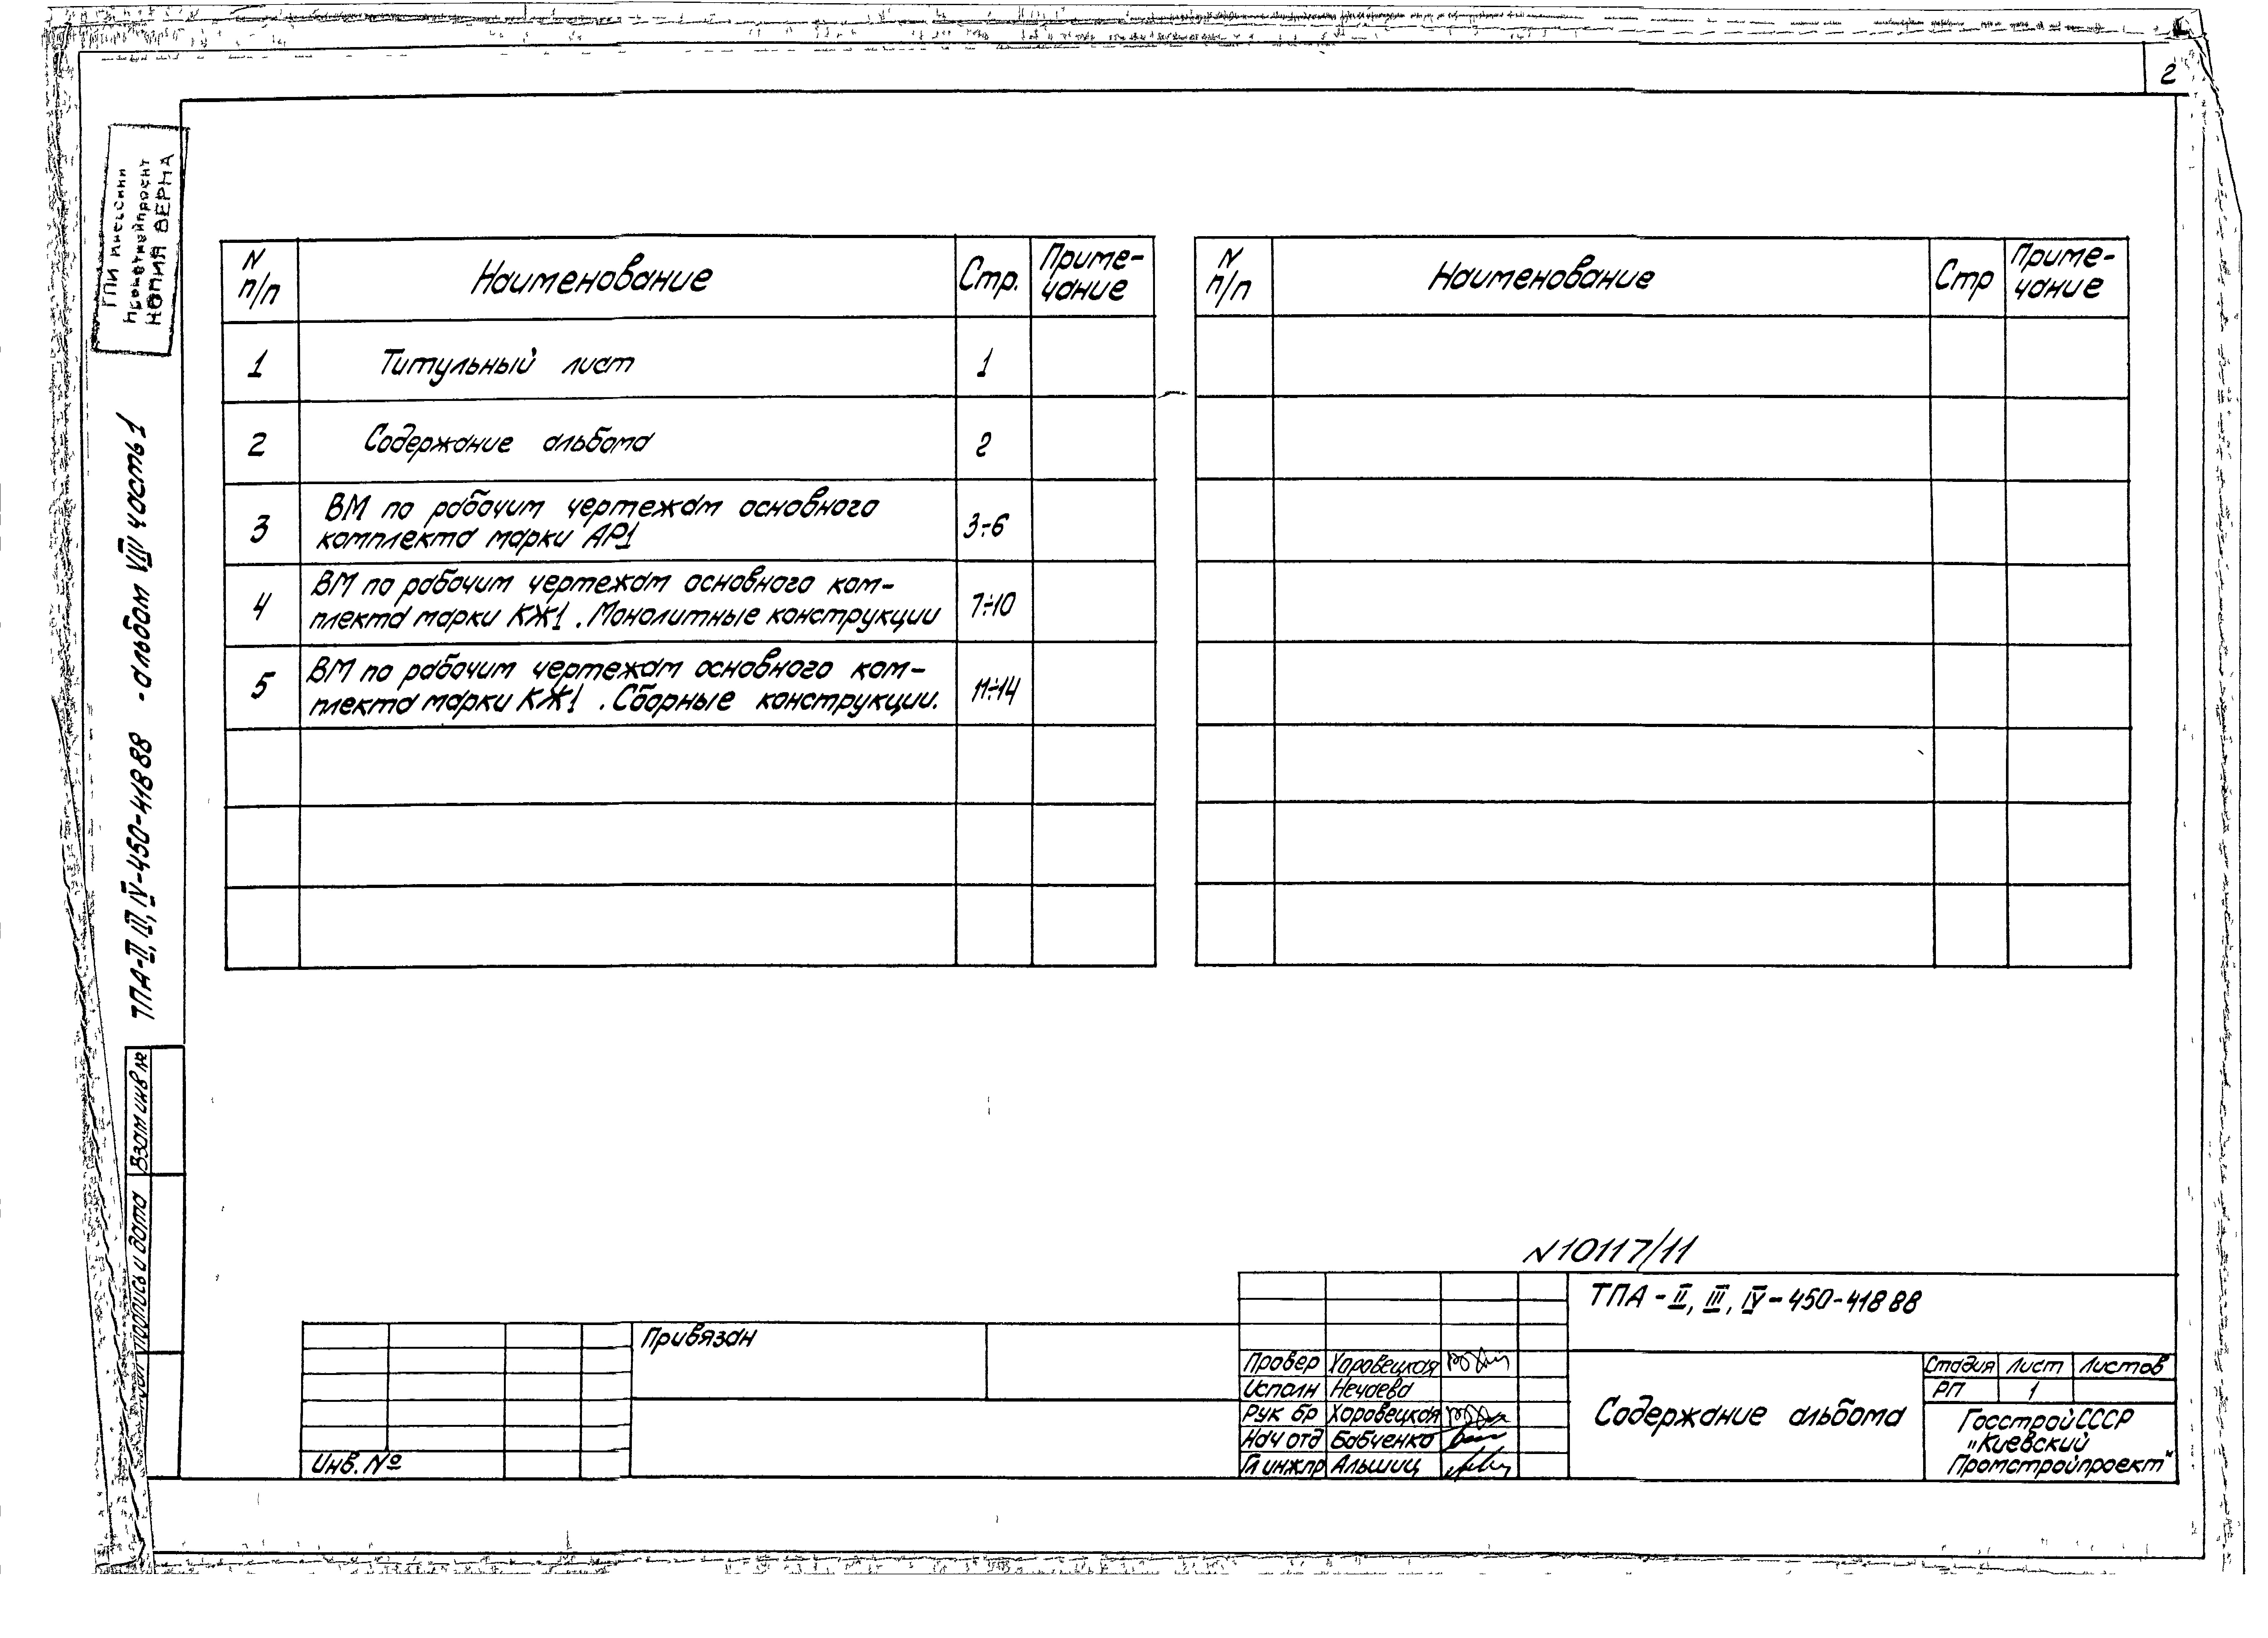 2
КОПИЯ ВЕРНА
ТПА-II, III, IV-450-418 88 - альбом VIII часть 1
N п/п
Наименование
Стр.
Приме-
чание
1
Титульный лист
1
2
Содержание альбома
2
3
ВМ по рабочим чертежам основного
комплекта марки АР1
3÷6
4
ВМ по рабочим чертежам основного ком-
плекта марки КЖ1. Монолитные конструкции
7÷10
5
ВМ по рабочим чертежам основного ком-
плекта марки КЖ1. Сборные конструкции.
11÷14
N п/п
Наименование
Стр
Приме-
чание
Взам инв №
Подпись и дата
N10117/11
ТПА - II, III, IV - 450-418 88
Привязан
Инв. №
Провер Харовецкая
Исполн Нечаева
Рук бр Харовецкая
Нач отд Бабченко
Гл инж пр Альшиц
Содержание альбома
Стадия Лист Листов
РП 1
Госстрой СССР
"Киевский
Промстройпроект"